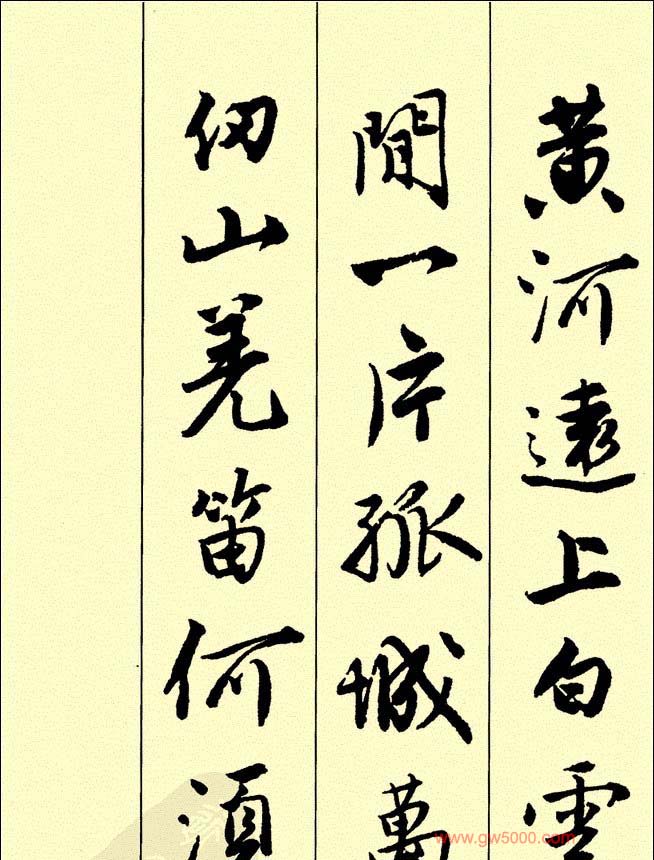 黃河遠上白雲
間一片孤城萬
仞山羌笛何須
www.gw5000.com